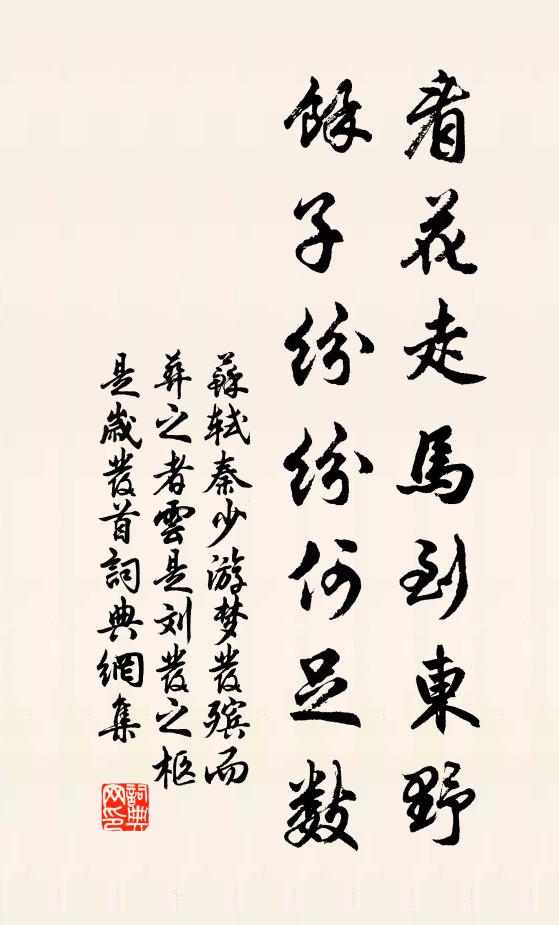 看花走馬到東野
餘子紛紛何足數
蘇軾秦少游梦發殯而
葬之者雲是刘發之柩
是歲發首詞典網集
詞典
网印